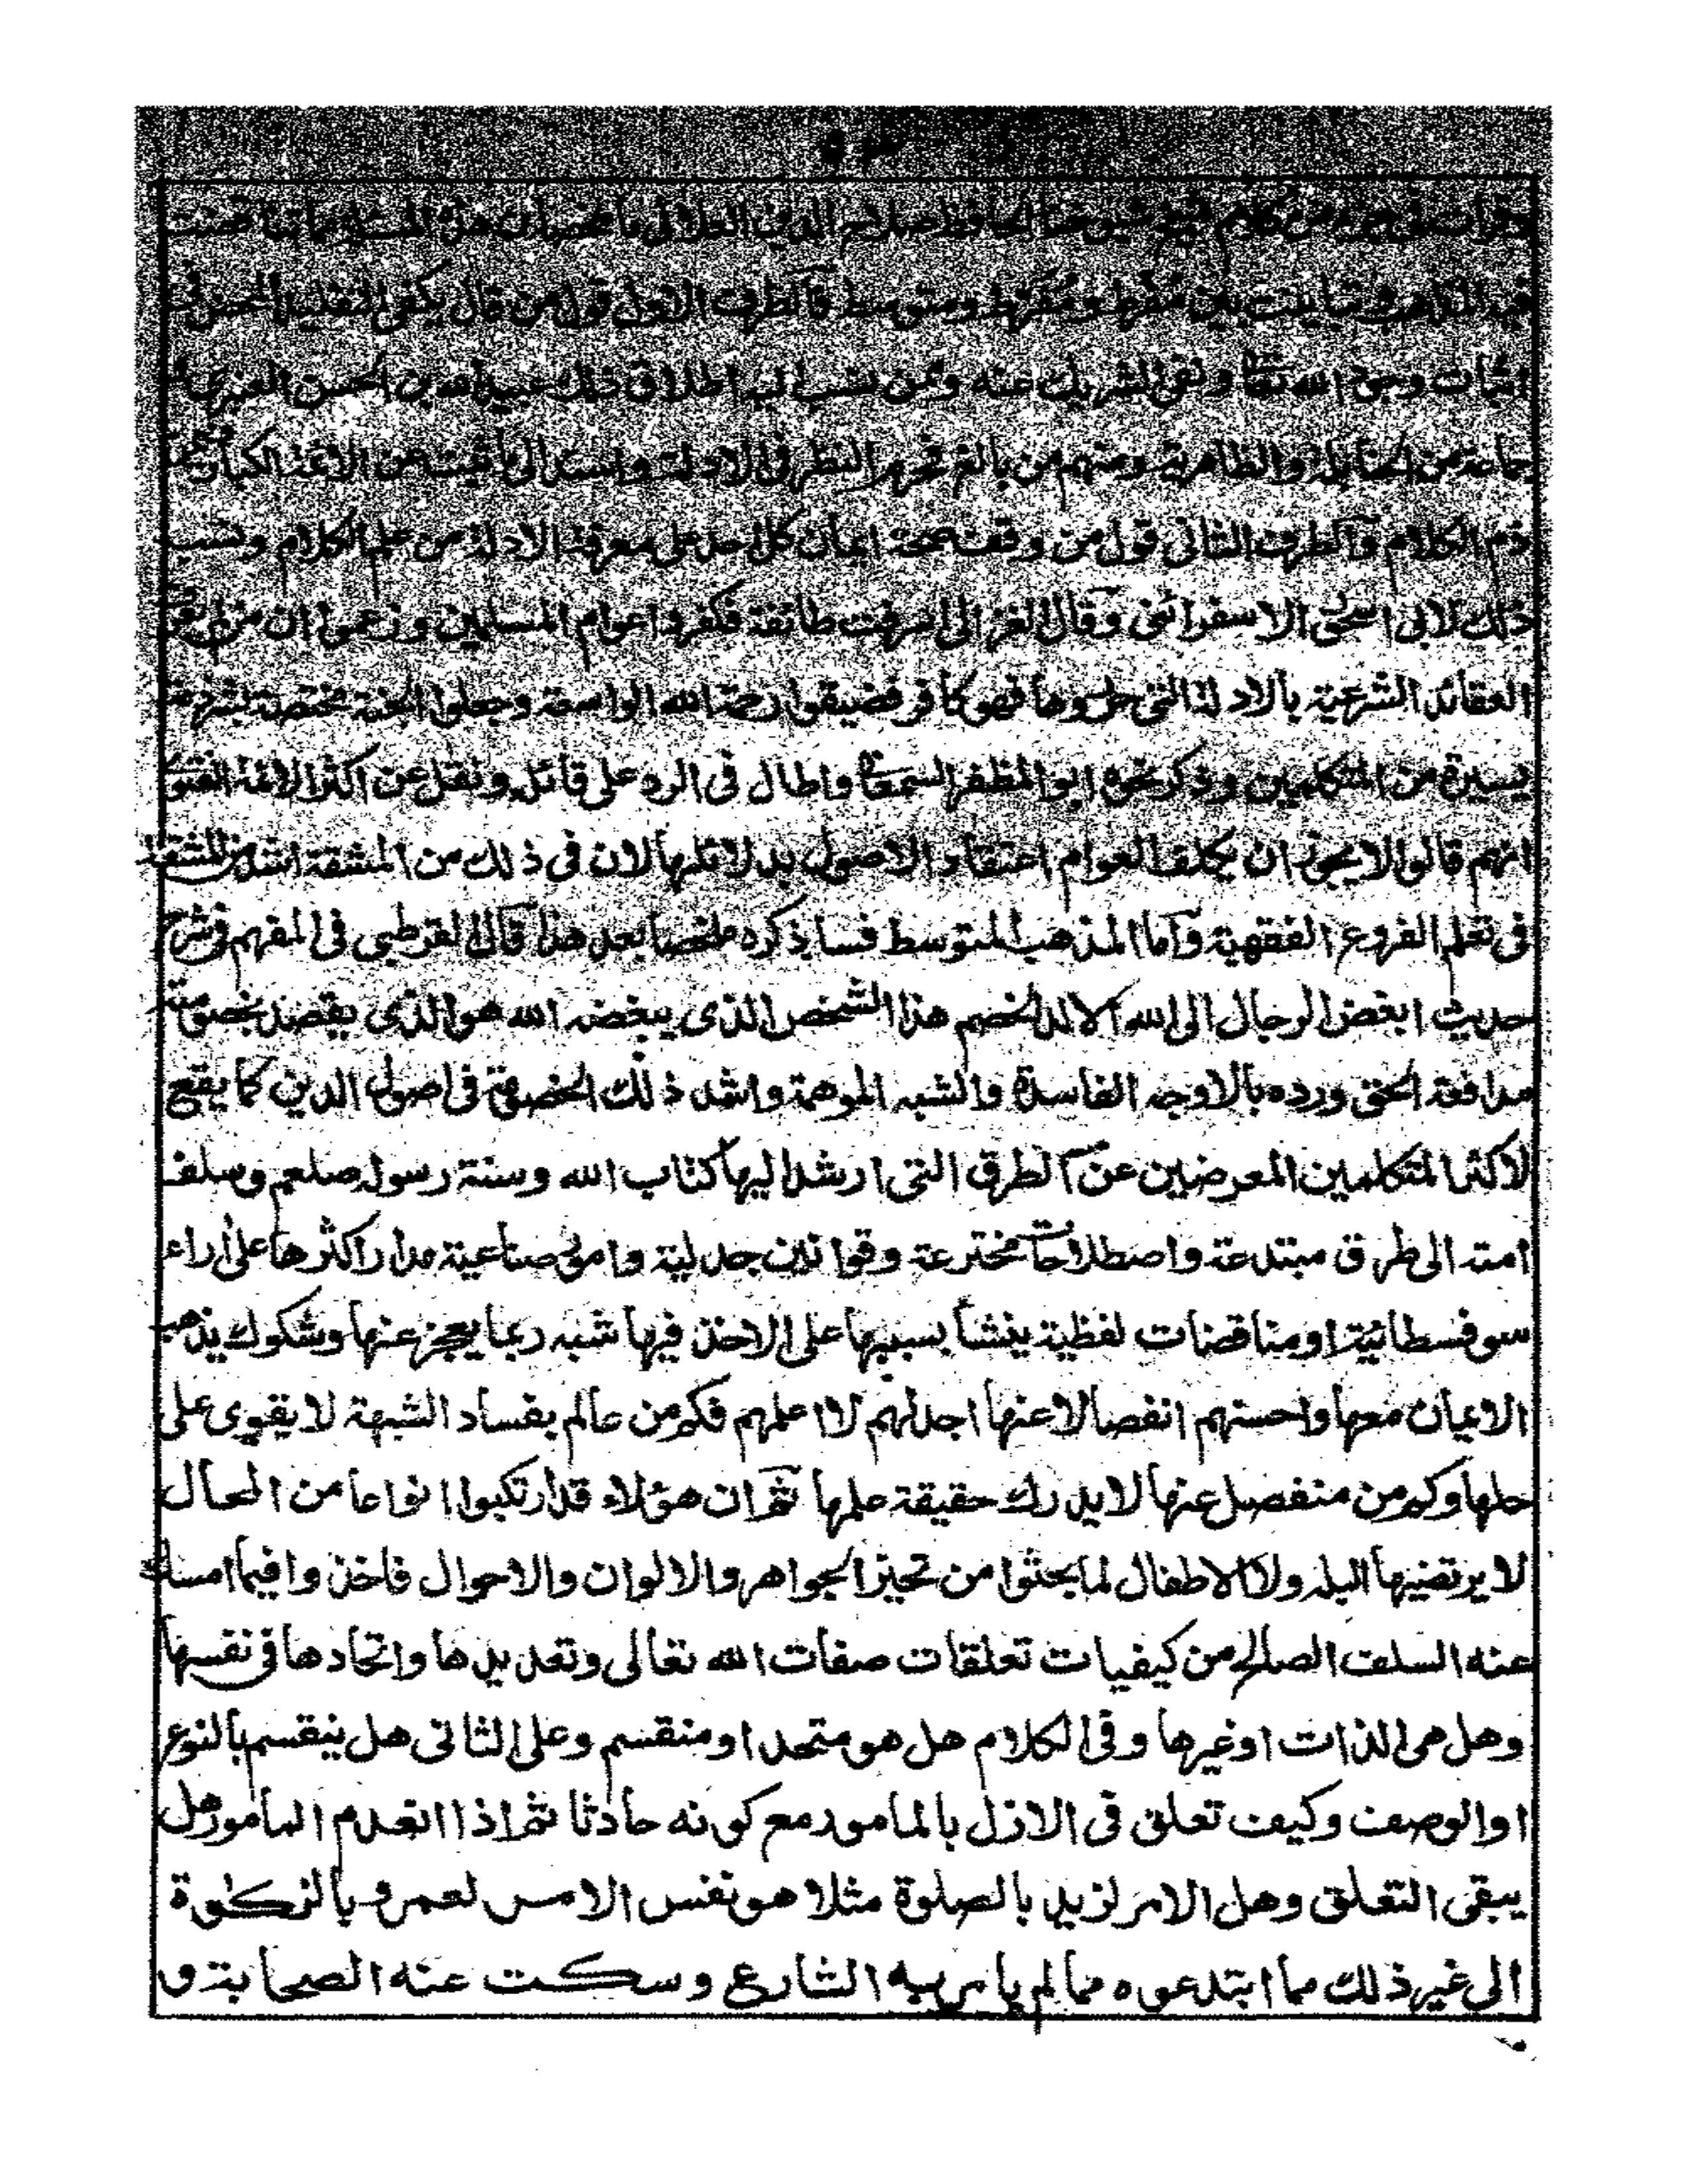 ٥٣
وقرأت في جزء من كلام شيخ شيوخنا الحافظ صلاح الدين العلائى ما ملخصه ان هذه المسئلة مما تناقضت
فيه المذاهب وتباينت بين مفرط ومفرط ومتوسط فالطرف الاول قول من قال يكفى التقليد المحض فى
اثبات وجود الله تعا ونفى الشريك عنه وممن نسب اليه اطلاق ذلك عبيد الله بن الحسن العنبرى و
جماعة من الحنابلة والظاهرية ومنهم من بالغ فحرم النظر فى الادلة واستند الى ما ثبت عن الائمة الكبار من
ذم الكلام والطرف الثانى قول من وقف صحة ايمان كل احد على معرفة الادلة من علم الكلام ونسب
ذلك لابى اسحق الاسفرائنى وقال الغزالى اسرفت طائفة فكفروا عوام المسلمين وزعموا ان من لم يعرف
العقائد الشرعية بالادلة التى حرروها فهو كافر فضيقوا رحمة الله الواسعة وجعلوا الجنة مختصة بشرذمة
يسيرة من المتكلمين وذكر نحوه ابو المظفر السمعا واطال فى الرد على قائله ونقل عن اكثر الائمة الفتوى
انهم قالوا لا يجوز ان يكلف العوام اعتقاد الاصول بدلائلها لان فى ذلك من المشقة اشد من المشقة
فى تعلم الفروع الفقهية واما المذهب المتوسط فسأذكره ملخصا بعد هذا قال القرطبى فى المفهم فى شرح
حديث ابغض الرجال الى الله الالد الخصم هذا الشخص الذى يبغضه الله هو الذى يقصد بخصومته
مدافعة الحق ورده بالاوجه الفاسدة والشبه الموهمة واشد ذلك الخصومة فى اصول الدين كما يقع
لاكثر المتكلمين المعرضين عن الطرق التى ارشد اليها كتاب الله وسنة رسوله صلعم وسلف
امته الى طرق مبتدعة واصطلاحات مخترعة وقوانين جدلية وامور صناعية مدار اكثرها على اراء
سوفسطائية او مناقضات لفظية ينشأ بسببها على الاخذ فيها شبه ربما يعجز عنها وشكوك يذهب
الايمان معها واحسنهم انفصالا عنها اجدلهم لا اعلمهم فكم من عالم بفساد الشبهة لا يقوى على
حلها وكم من منفصل عنها لا يدرك حقيقة علمها ثم ان هؤلاء قد ارتكبوا انواعا من المحال
لا يرتضيها البله ولا الاطفال لما بحثوا من تحيز الجواهر والالوان والاحوال فاخذوا فيما امسك
عنه السلف الصالح من كيفيات تعلقات صفات الله تعالى وتعديدها واتحادها فى نفسها
وهل هى الذات او غيرها وفى الكلام هل هو متحد او منقسم وعلى الثانى هل ينقسم بالنوع
او الوصف وكيف تعلق فى الازل بالمامور مع كونه حادثا ثم اذا انعدم المأمور هل
يبقى التعلق وهل الامر لزيد بالصلوة مثلا هو نفس الامر لعمرو بالزكوة
الى غير ذلك مما ابتدعوه مما لم يامر به الشارع وسكت عنه الصحابة و